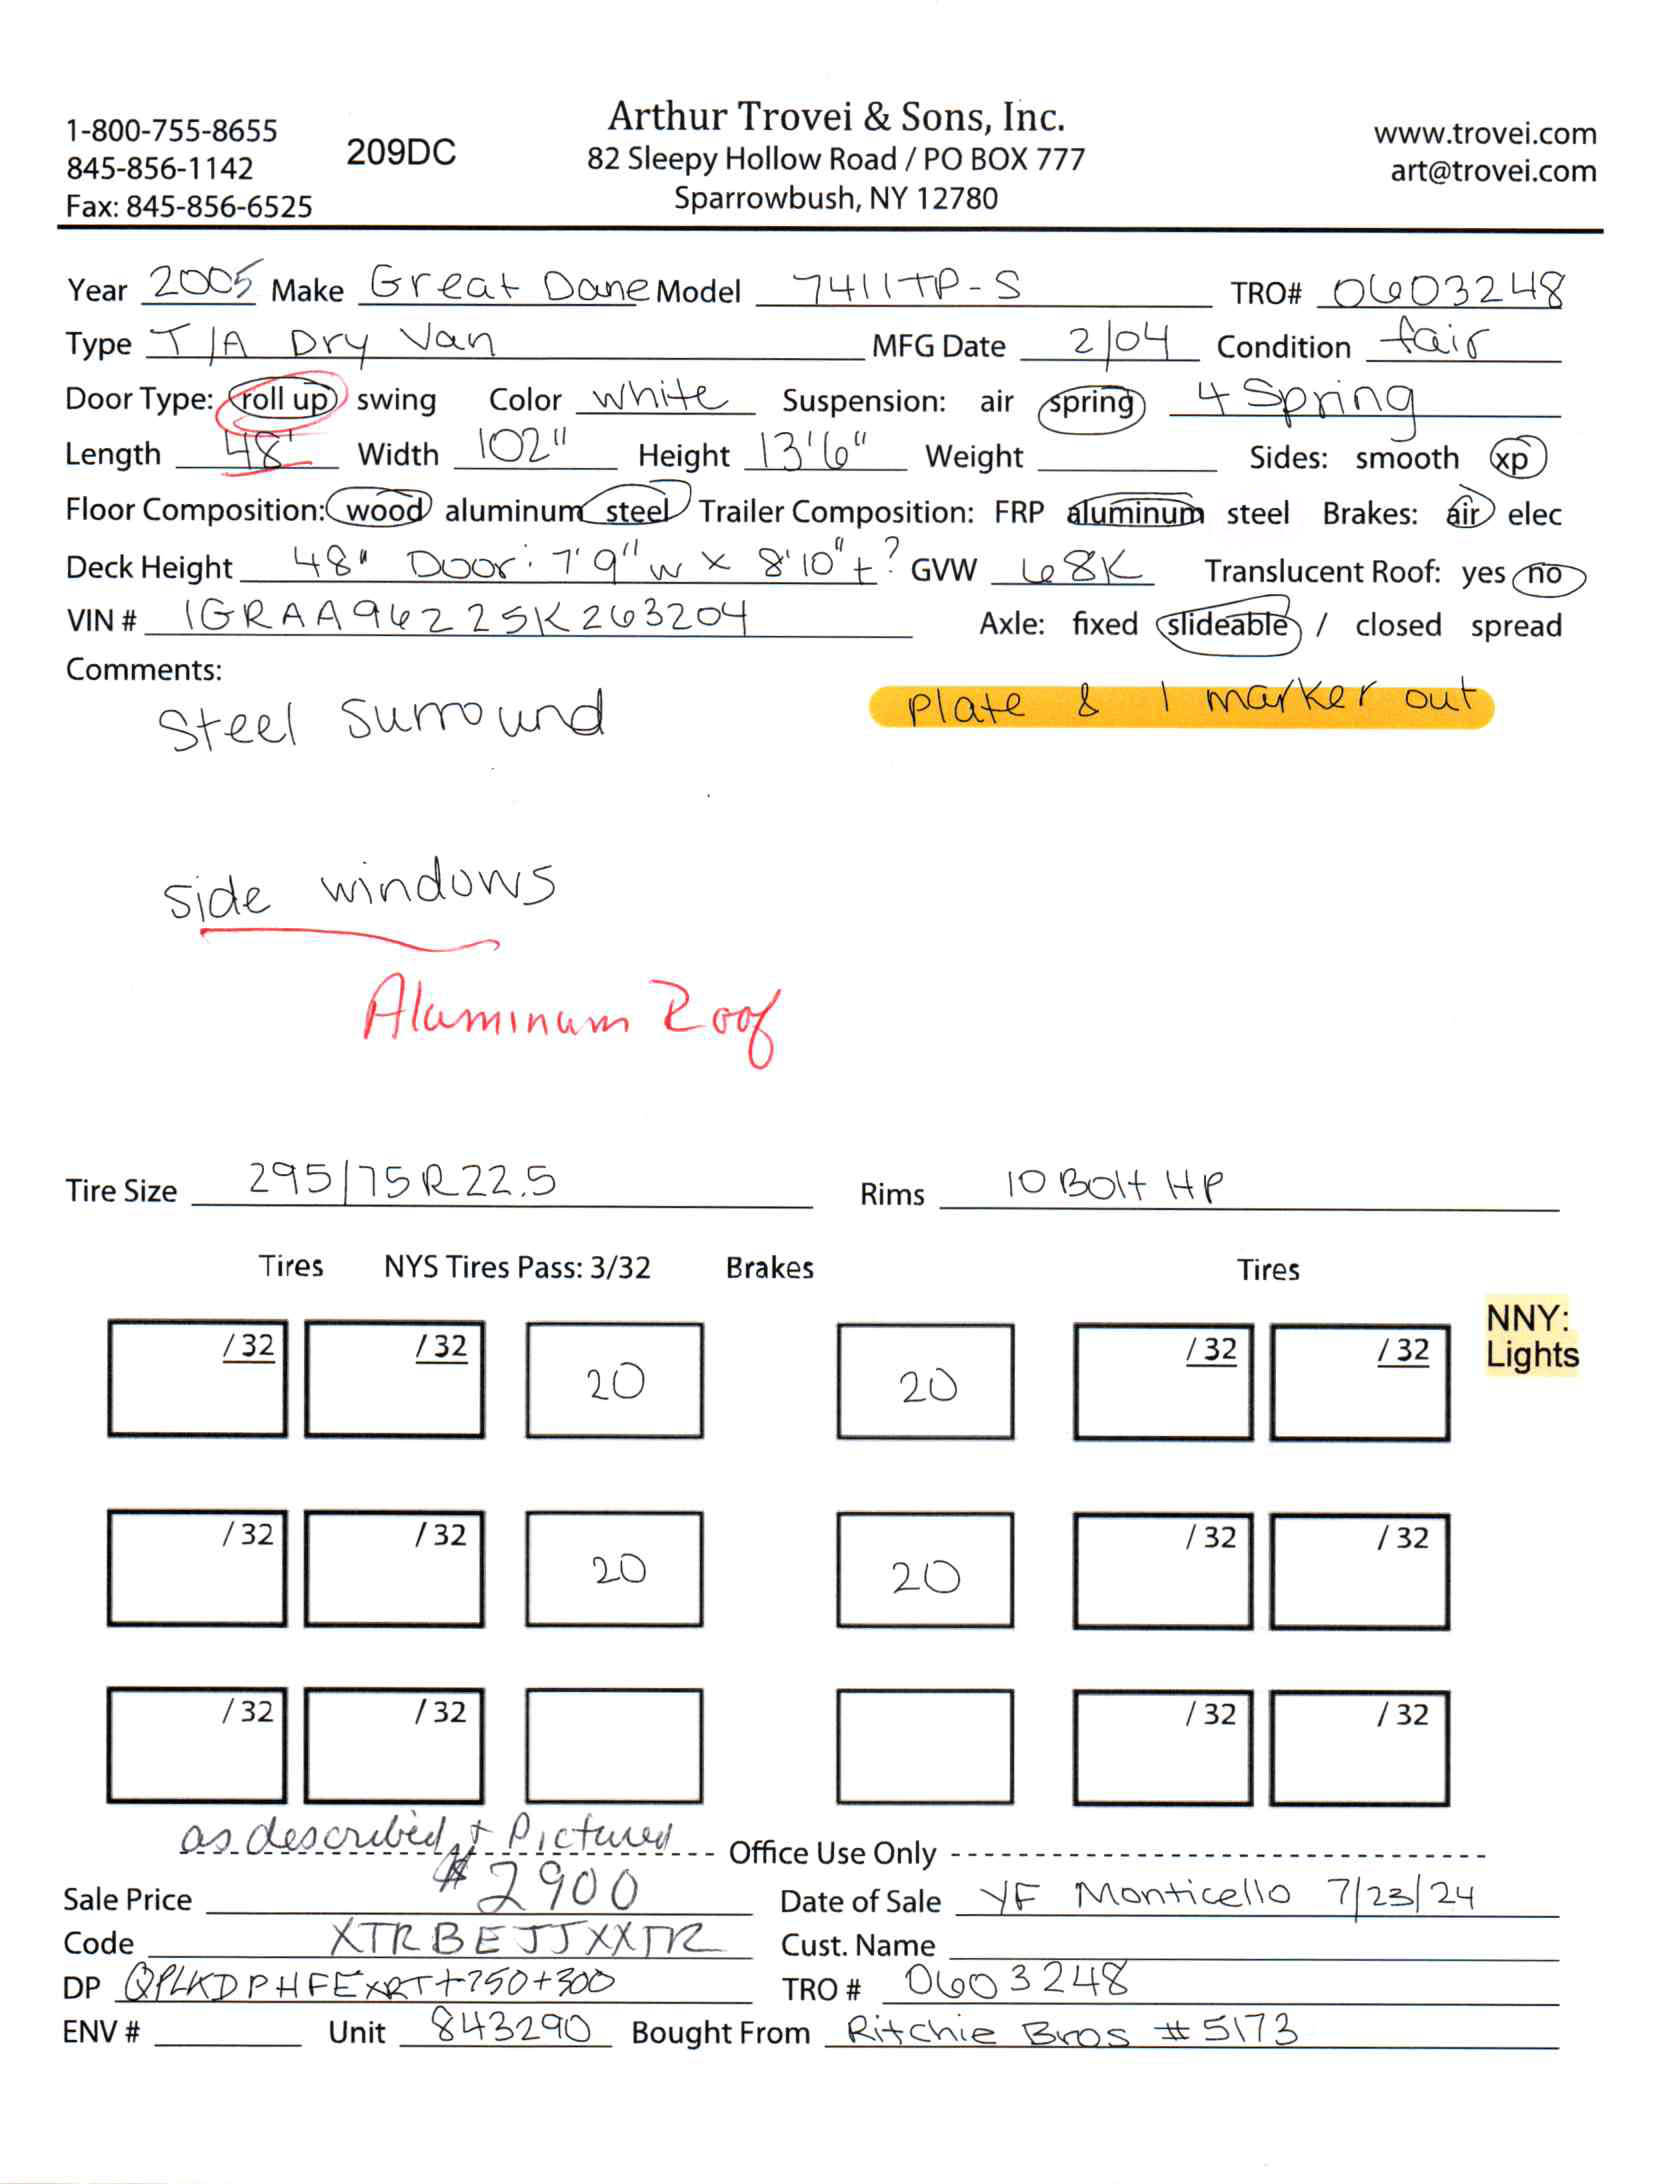 1-800-755-8655
845-856-1142
Fax: 845-856-6525
209DC
Arthur Trovei & Sons, Inc.
82 Sleepy Hollow Road / PO BOX 777
Sparrowbush, NY 12780
www.trovei.com
art@trovei.com
Year 2005 Make Great Dane Model 7411TP-S TRO# 0603248
Type T/A Dry Van MFG Date 2/04 Condition fair
Door Type: roll up swing Color white Suspension: air spring 4 Spring
Length 48' Width 102" Height 13'6" Weight Sides: smooth xp
Floor Composition: wood aluminum steel Trailer Composition: FRP aluminum steel Brakes: air elec
Deck Height 48" Door: 7'9"w x 8'10"+? GVW 68K Translucent Roof: yes no
VIN # 1GRAA96225K263204 Axle: fixed slideable / closed spread
Comments:
Steel Surround
plate & 1 marker out
side windows
Aluminum Roof
Tire Size 295/75R22.5 Rims 10 Bolt HP
Tires NYS Tires Pass: 3/32 Brakes Tires
NNY:
Lights
/32 /32 20 20 /32 /32
/32 /32 20 20 /32 /32
/32 /32 /32 /32
as described + Pictured
Office Use Only
Sale Price $2900 Date of Sale YF Monticello 7/23/24
Code XTRBEJJXXTR Cust. Name
DP QPLKDPHFEXRT+750+300 TRO # 0603248
ENV # Unit 843290 Bought From Ritchie Bros #5173